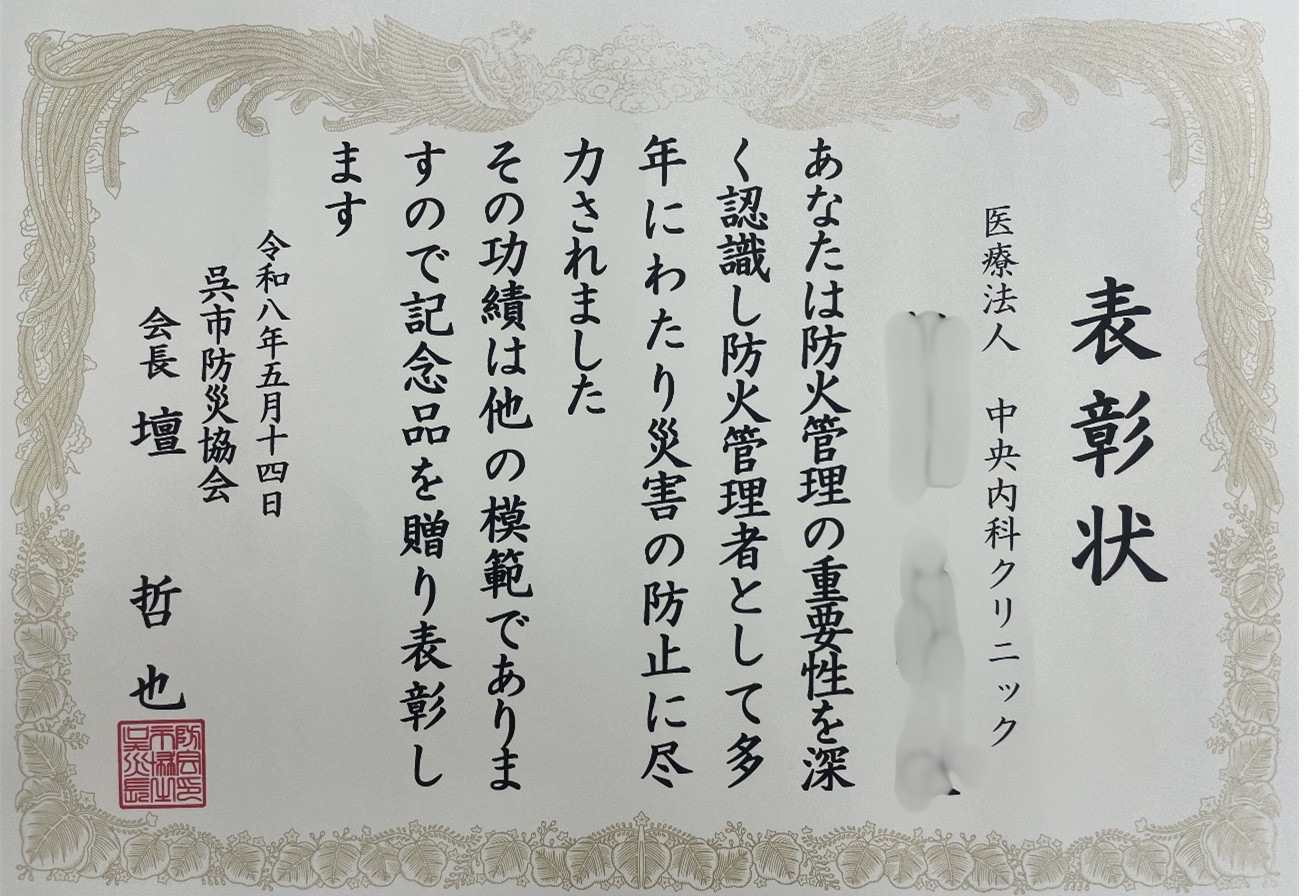 表彰状
医療法人 中央内科クリニック
あなたは防火管理の重要性を深
く認識し防火管理者として多
年にわたり災害の防止に尽
力されました
その功績は他の模範でありま
すので記念品を贈り表彰し
ます
令和八年五月十四日
呉市防災協会
会長 壇 哲也